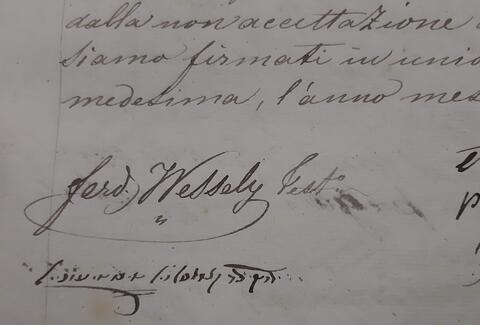 dalla non accettazione
siamo firmati in unio
medesima, l'anno mes
ferd. Wessely Test.º